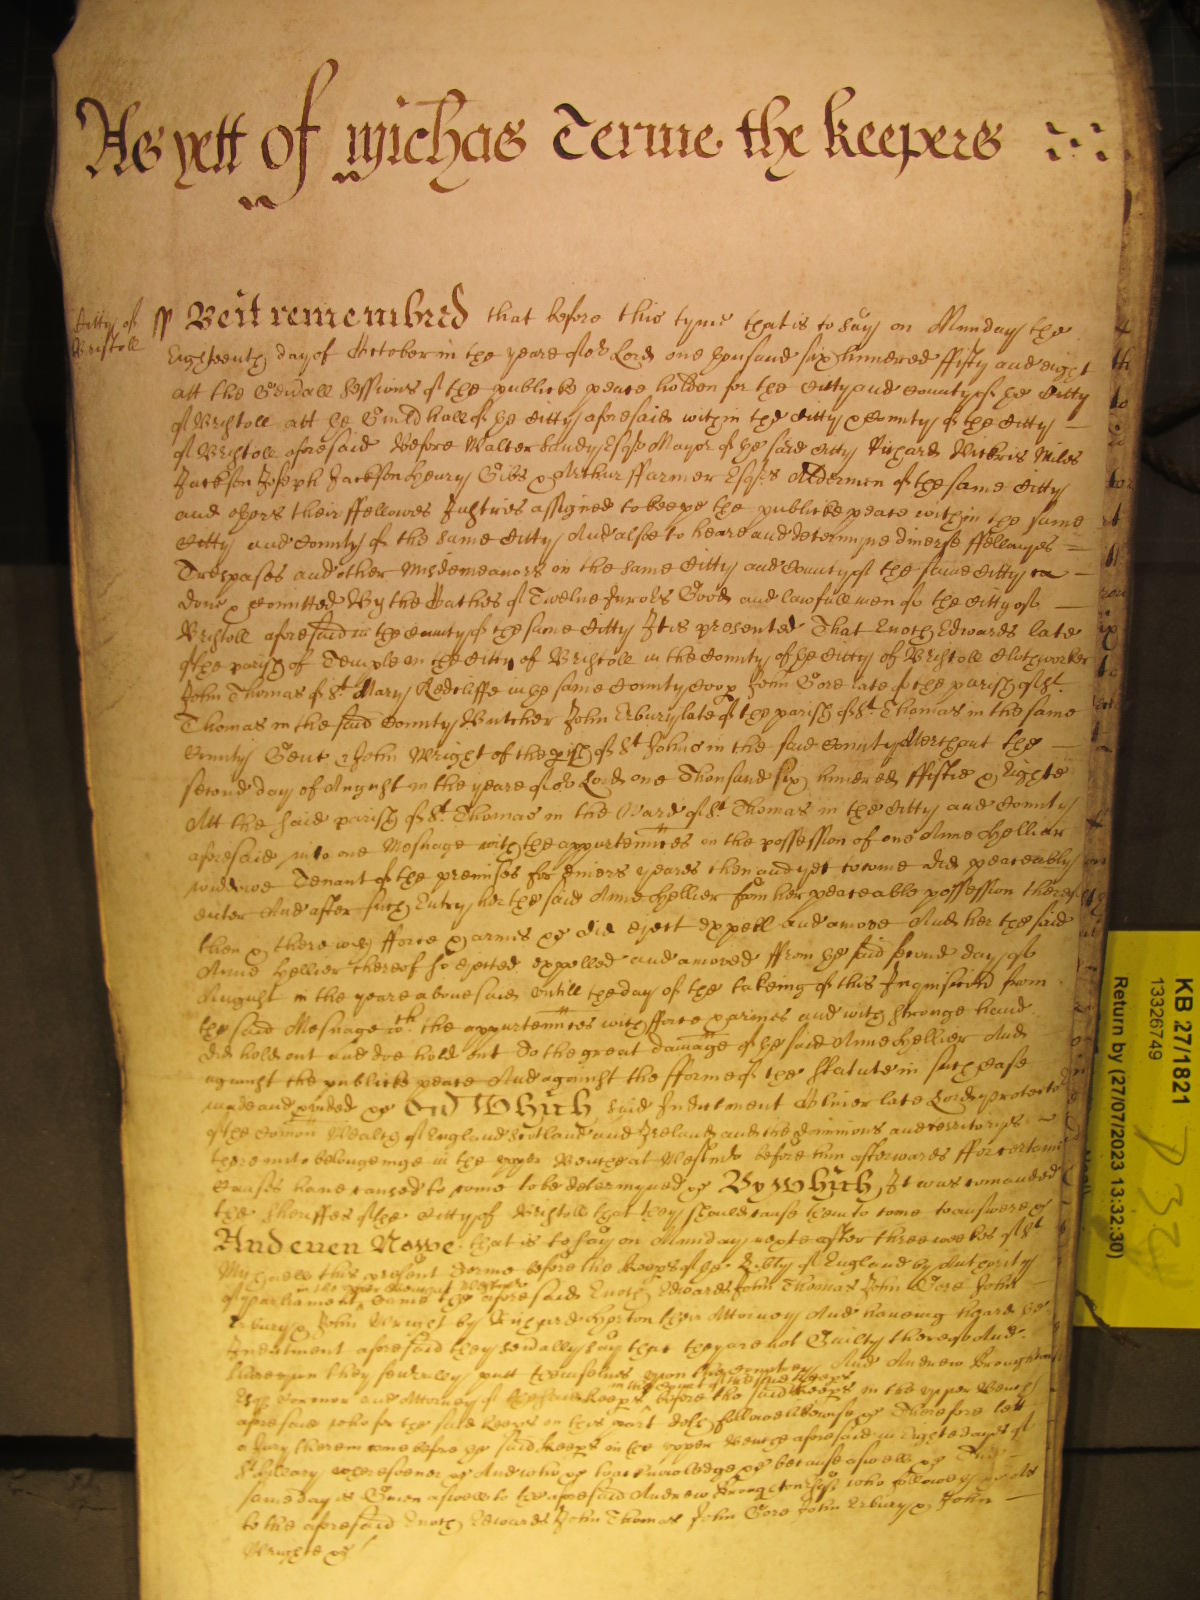 As yett of Michas Terme the keepers
Citty of
Bristoll
ss Be it remembred that before this tyme that is to say on Munday the
Eighteenth day of October in the yeare of or Lord one thousand six hundred ffifty and eight
att the Generall Sessions of the publicke peace holden for the Citty and County of the Citty
of Bristoll att the Guildhall of the Citty aforesaid within the Citty & County of the Citty
of Bristoll aforesaid Before Walter Sandy Esqr Mayor of the said Citty Richard Vickris Miles
Jackson Joseph Jackson Henry Gibs & Arthur ffarmer Esqrs Aldermen of the same Citty
and others their ffellowes Justices assigned to keepe the publicke peace within the same
Citty and County of the same Citty And alsoe to heare and determyne diverse ffellonyes
Trespases and other Misdemeanors in the same Citty and County of the same Citty
done & comitted By the Oathes of Twelve Jurors Good and lawfull men of the Citty of
Bristoll aforesaid in the County of the same Citty It is presented That Enoch Edwards late
of the parish of Temple in the Citty of Bristoll in the County of the Citty of Bristoll Clothworker
John Thomas of St Mary Redcliffe in the same County Coop John Gore late of the parish of St
Thomas in the said County Butcher John Erbury late of the parish of St Thomas in the same
County Gent & John Wright of the pish of St Johns in the said County Merchant the
second day of August in the yeare of or Lord one Thousand six hundred ffiftie & Eighte
Att the said parish of St Thomas in the Ward of St Thomas in the Citty and County
aforesaid into one Mesuage with the appurtennces in the possession of one Anne Hellier
widdowe Tenant of the premises for divers yeares then and yet to come did peaceably
enter And after such Entry her the said Anne Hellier from her peaceable possession thereof
then & there with fforce & armes &c did eject expell and amove And her the said
Anne Hellier thereof so ejected expelled and amoved ffrom the said second day of
August in the yeare abovesaid untill the day of the takeing of this Inquisicon from
the said Mesuage wth the appurtennces with fforce & armes and with stronge hand
did hold out and doe hold out To the great damage of the said Anne Hellier And
against the publicke peace And against the fforme of the Statute in such case
made and pvided &c And Which said Indictment Oliver late Lord protector
of the Comon Wealth of England Scotland and Ireland and the dominions and territories
thereunto belonginge in the upper Bench at Westmr before him afterwards ffor certaine
causes have caused to come to be determyned &c By which It was comanded
the Sheriffes of the Citty of Bristoll that they should cause them to come to answere &c
And even Nowe that is to say on Munday next after three weekes of St
Michaell this present Terme before the keeps of the Libty of England by Authority
of parliament in the upper Bench at Westmr came the aforesaid Enoch Edwards John Thomas John Gore John
Erbury & John Wright by Richard Horton their Attorney And haveing heard the
Indictment aforesaid they sevally say that they are not Guilty thereof And
thereupon they severally putt themselves upon the Countrey And Andrew Broughton
Esqr Coronor and Attorney of the said keeps in the Court of the said keeps before the said keeps in the upper Bench
aforesaid who for the said keeps in this part doth follow likewise &c Therefore lett
a Jury therein come before the said keeps in the upper Bench aforesaid in Eight dayes of
St Hillary wheresoever &c And who &c to acknowledge &c because aswell &c The
same day is Given aswell to the aforesaid Andrew Broughton Esqr who followeth &c As
to the aforesaid Enoch Edwards John Thomas John Gore John Erbury & John
Wrighte &c
KB 27/1821
13326749
Return by (27/07/2023 13:32:30)